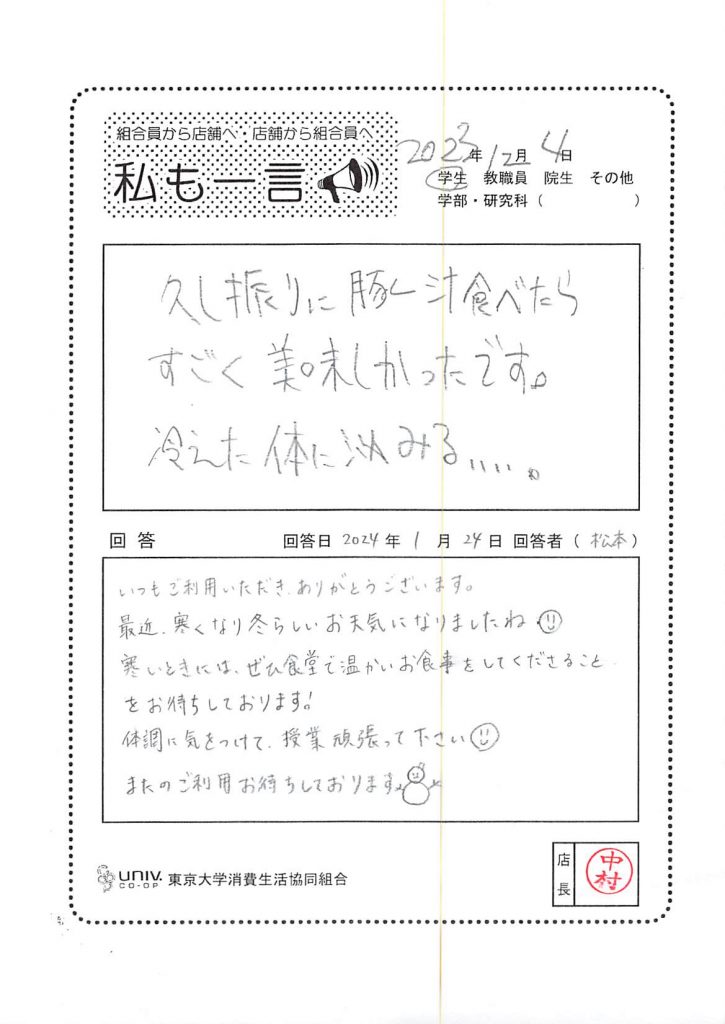 組合員から店舗へ・店舗から組合員へ
私も一言
2023年12月4日
学生 教職員 院生 その他
学部・研究科( )
久し振りに豚汁食べたら
すごく美味しかったです。
冷えた体に沁みる....。
回答 回答日 2024年1月24日 回答者(松本)
いつもご利用いただき、ありがとうございます。
最近、寒くなり冬らしいお天気になりましたね
寒いときには、ぜひ食堂で温かいお食事をしてくださること
をお待ちしております!
体調に気をつけて、授業頑張って下さい
またのご利用お待ちしております
UNIV. CO-OP 東京大学消費生活協同組合
店長 中村